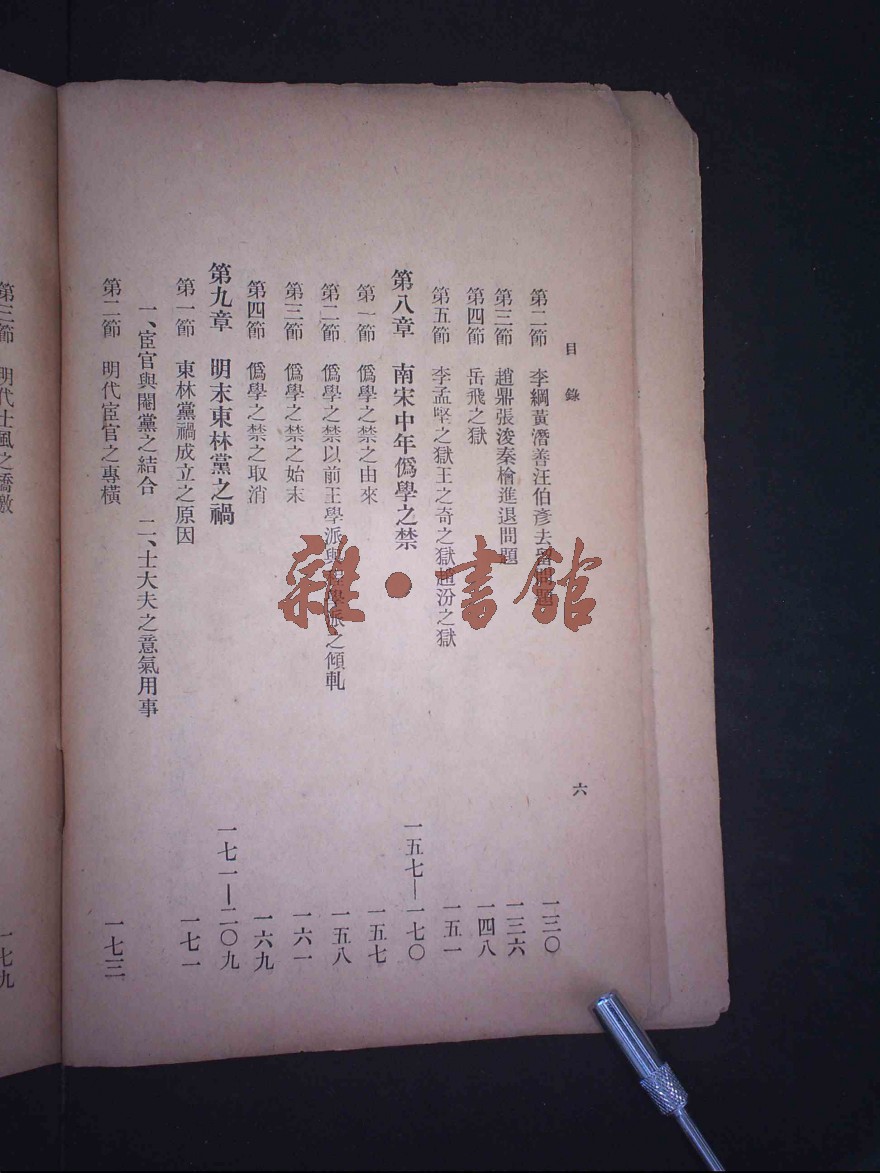 目錄
六
第二節 李綱黃潛善汪伯彥去留問題 一三〇
第三節 趙鼎張浚秦檜進退問題 一三六
第四節 岳飛之獄 一四八
第五節 李孟堅之獄王之奇之獄趙汾之獄 一五一
第八章 南宋中年僞學之禁 一五七—一七〇
第一節 僞學之禁之由來 一五七
第二節 僞學之禁以前王學派與程學派之傾軋 一五八
第三節 僞學之禁之始末 一六一
第四節 僞學之禁之取消 一六九
第九章 明末東林黨之禍 一七一—二〇九
第一節 東林黨禍成立之原因 一七一
一、宦官與閹黨之結合 二、士大夫之意氣用事
第二節 明代宦官之專橫 一七三
第三節 明代士風之矯激 一七九
雜·書館